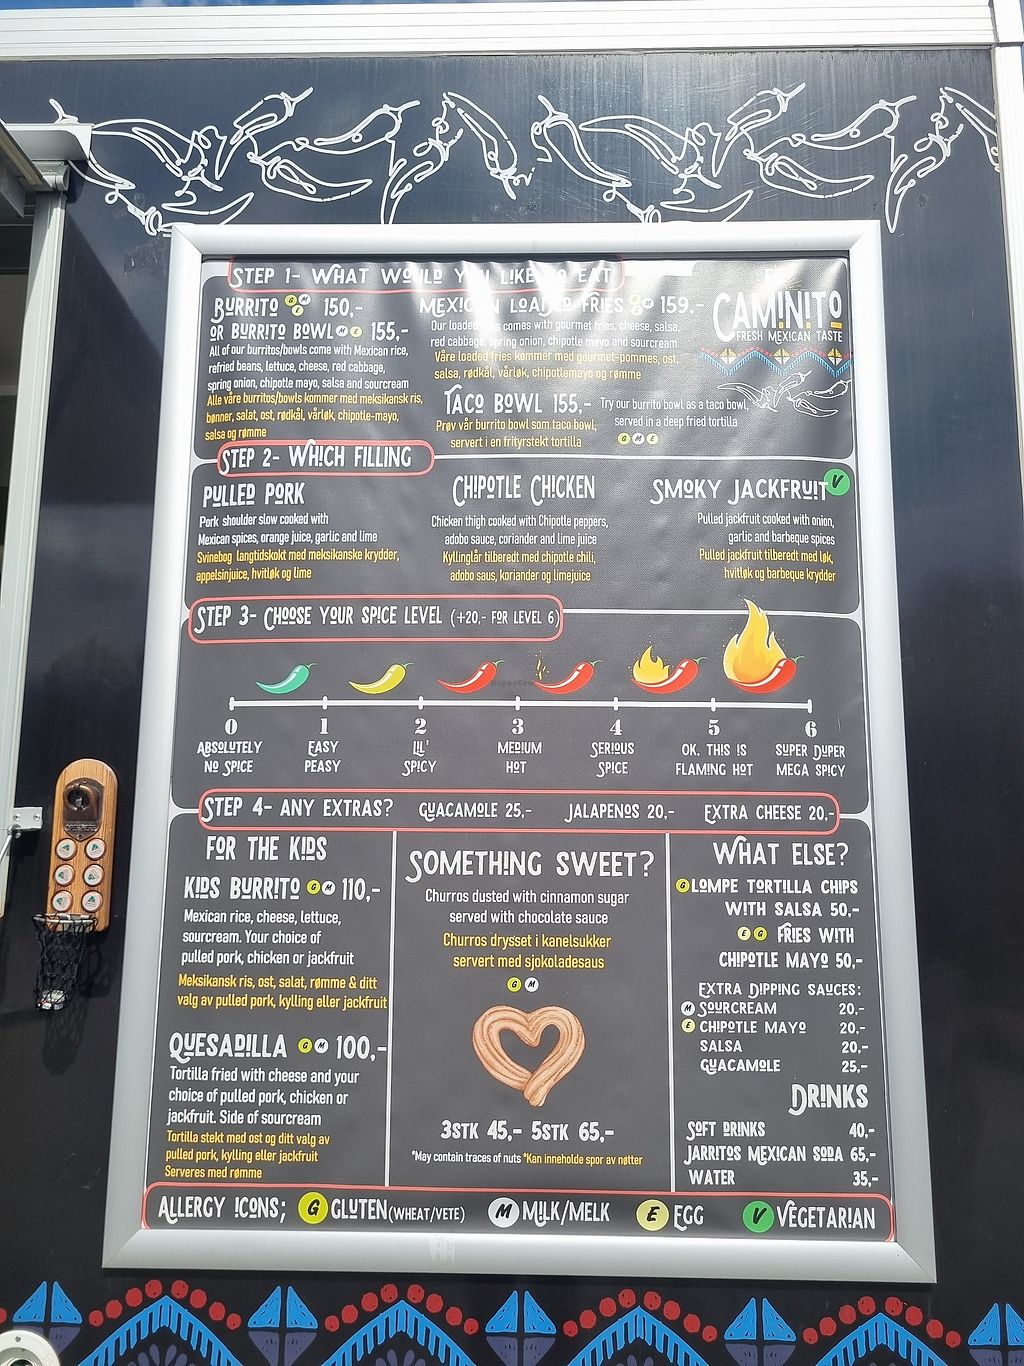 STEP 1- WHAT WOULD YOU LIKE TO EAT
BURRITO G M E 150,-
OR BURRITO BOWL M E 155,-
All of our burritos/bowls come with Mexican rice,
refried beans, lettuce, cheese, red cabbage,
spring onion, chipotle mayo, salsa and sourcream
Alle våre burritos/bowls kommer med meksikansk ris,
bønner, salat, ost, rødkål, vårløk, chipotle-mayo,
salsa og rømme
MEXICAN LOADED FRIES M 159,-
Our loaded comes with gourmet fries, cheese, salsa,
red cabbage, spring onion, chipotle mayo and sourcream
Våre loaded fries kommer med gourmet-pommes, ost,
salsa, rødkål, vårløk, chipotlemayo og rømme
TACO BOWL 155,-
Prøv vår burrito bowl som taco bowl,
servert i en frityrstekt tortilla
Try our burrito bowl as a taco bowl,
served in a deep fried tortilla
G M E
CAMINITO
FRESH MEXICAN TASTE
STEP 2- WHICH FILLING
PULLED PORK
Pork shoulder slow cooked with
Mexican spices, orange juice, garlic and lime
Svinebog langtidskokt med meksikanske krydder,
appelsinjuice, hvitløk og lime
CHIPOTLE CHICKEN
Chicken thigh cooked with Chipotle peppers,
adobo sauce, coriander and lime juice
Kyllinglår tilberedt med chipotle chili,
adobo saus, koriander og limejuice
SMOKY JACKFRUIT V
Pulled jackfruit cooked with onion,
garlic and barbeque spices
Pulled jackfruit tilberedt med løk,
hvitløk og barbeque krydder
STEP 3- CHOOSE YOUR SPICE LEVEL (+20,- FOR LEVEL 6)
0 1 2 3 4 5 6
ABSOLUTELY NO SPICE
EASY PEASY
LIL' SPICY
MEDIUM HOT
SERIOUS SPICE
OK, THIS IS FLAMING HOT
SUPER DUPER MEGA SPICY
STEP 4- ANY EXTRAS? GUACAMOLE 25,- JALAPENOS 20,- EXTRA CHEESE 20,-
FOR THE KIDS
KIDS BURRITO G M 110,-
Mexican rice, cheese, lettuce,
sourcream. Your choice of
pulled pork, chicken or jackfruit
Meksikansk ris, ost, salat, rømme & ditt
valg av pulled pork, kylling eller jackfruit
QUESADILLA G M 100,-
Tortilla fried with cheese and your
choice of pulled pork, chicken or
jackfruit. Side of sourcream
Tortilla stekt med ost og ditt valg av
pulled pork, kylling eller jackfruit
Serveres med rømme
SOMETHING SWEET?
Churros dusted with cinnamon sugar
served with chocolate sauce
Churros drysset i kanelsukker
servert med sjokoladesaus
G M
3STK 45,- 5STK 65,-
*May contain traces of nuts *Kan inneholde spor av nøtter
WHAT ELSE?
G LOMPE TORTILLA CHIPS
WITH SALSA 50,-
E G FRIES WITH
CHIPOTLE MAYO 50,-
EXTRA DIPPING SAUCES:
M SOURCREAM 20,-
E CHIPOTLE MAYO 20,-
SALSA 20,-
GUACAMOLE 25,-
DRINKS
SOFT DRINKS 40,-
JARRITOS MEXICAN SODA 65,-
WATER 35,-
ALLERGY ICONS; G GLUTEN(WHEAT/VETE) M MILK/MELK E EGG V VEGETARIAN